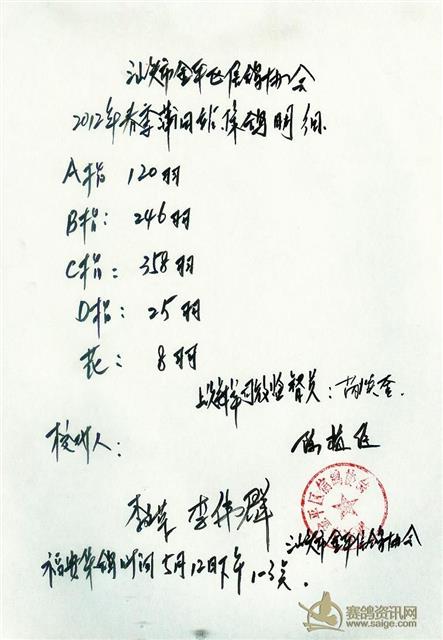 汕头市金平区信鸽协会
2012年春季莆田站集鸽明细
A指 120羽
B指: 246羽
C指: 358羽
D指: 25羽
花: 8羽
上海 司放监督员:
校对人:
李伟群
平区信鸽协会
汕头市金平区信鸽协会
福安集鸽时间5月12日下午
赛鸽资讯网
www.saige.com